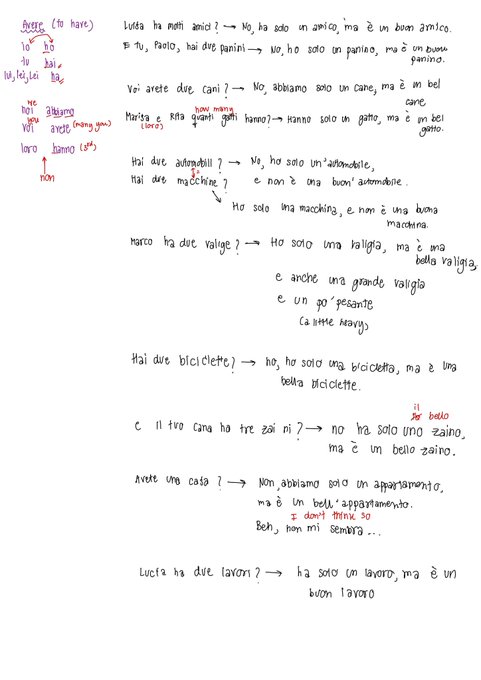 Avere (to have)
io ho
tu hai
lui, lei, Lei ha
we
noi abbiamo
you
voi avete (many you)
loro hanno (3rd)
non
Lucia ha molti amici? → No, ha solo un amico, ma è un buon amico.
E tu, Paolo, hai due panini → No, ho solo un panino, ma è un buon
panino.
Voi avete due cani? → No, abbiamo solo un cane, ma è un bel
cane
how many
Marisa e Rita quanti gatti hanno? → Hanno solo un gatto, ma è un bel
(loro)
gatto.
Hai due automobili? → No, ho solo un'automobile,
Hai due macchine? e non è una buon'automobile.
Ho solo una macchina, e non è una buona
macchina.
Marco ha due valige? → Ho solo una valigia, ma è una
bella valigia,
e anche una grande valigia
e un po' pesante
(a little heavy)
Hai due biciclette? → no, ho solo una bicicletta, ma è una
bella biciclette.
il bello
e il tuo cana ha tre zai ni? → no ha solo uno zaino,
ma è un bello zaino.
Avete una casa? → Non, abbiamo solo un appartamento,
ma è un bell'appartamento.
I don't think so
Beh, non mi sembra...
Lucia ha due lavori? → ha solo un lavoro, ma è un
buon lavoro